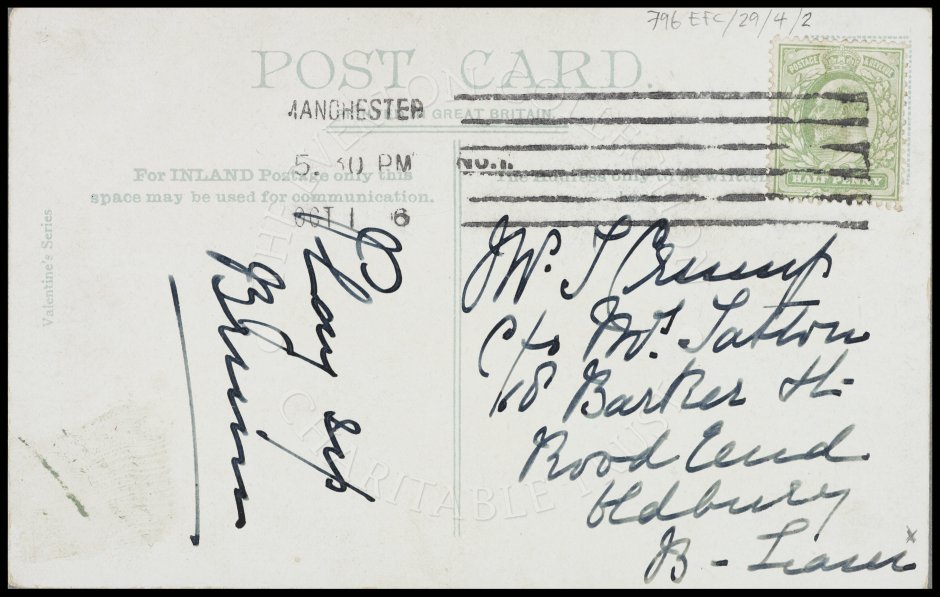 796 EFC/29/4/2
POST CARD.
GREAT BRITAIN.
MANCHESTER
5. 30 PM
OCT 1 6
NO. 1.
POSTAGE
HALF PENNY
For INLAND Postage only this
space may be used for communication.
The address only to be written
Valentine's Series
THE EVERTON
CHARITABLE TRUST
Play up
Blues
Mr. T Crump
c/o Mrs. Tatton
Barker St.
Rood End
Oldbury
B -